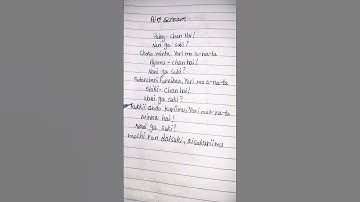 Ai♡ scream
Ruby-chan Hai!
Nani ga suki?
Choko minto, Yori mo a-na-ta
Ayumu-chan hai!
Nani ga suki?
Yori mo a-na-ta
Shiki-chan hai!
Nani ga suki?
Yori mo a-na-ta
Minna hai!
Nani ga suki?
daisuki, aisukuriimu